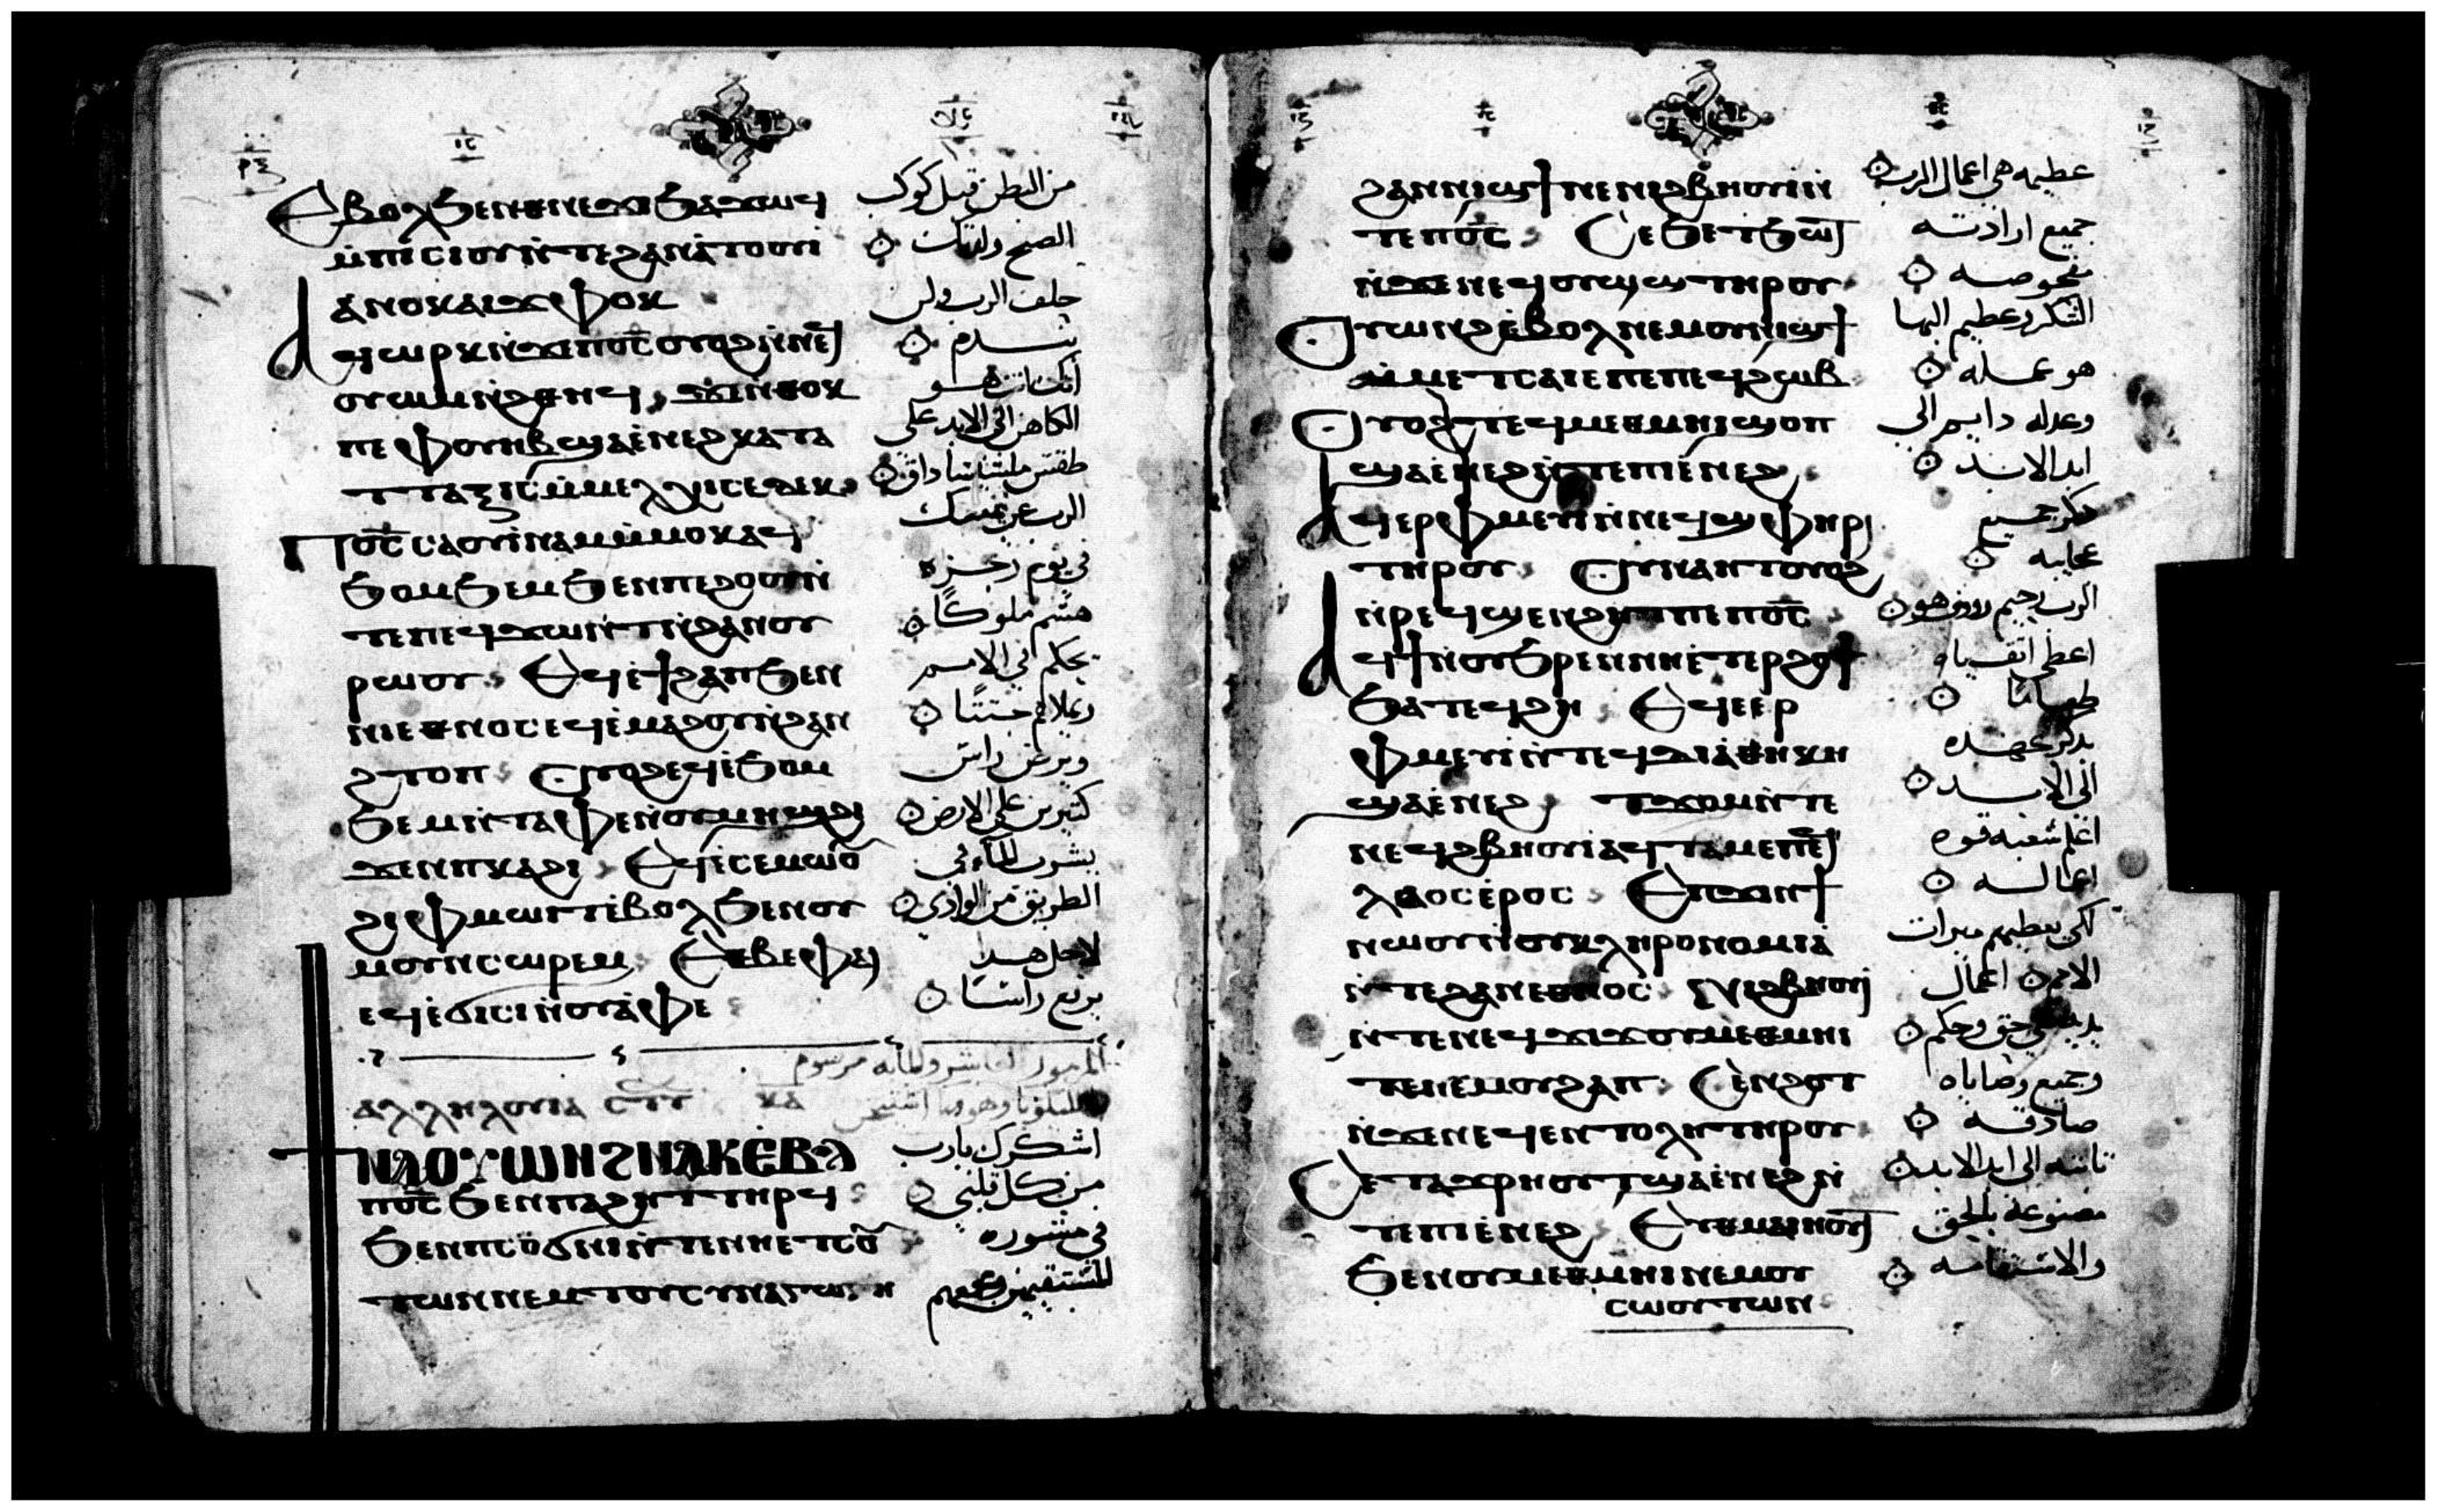 Ⲉⲃⲟⲗϧⲉⲛⲑⲛⲉϫⲓϧⲁϫⲱϥ
ⲙ̀ⲡⲓⲥⲓⲟⲩⲛ̀ⲧⲉϩⲁⲛⲁ̀ⲧⲟⲟⲩⲓ̀
ⲁⲛⲟⲕⲁⲓϫⲫⲟⲕ
Ⲁϥⲱⲣⲕⲛ̀ϫⲉⲡⲟ̅ⲥ̅ⲟⲩⲟϩⲛ̀ⲛⲉϥ
ⲟⲩⲱⲙⲛ̀ϩⲑⲏϥ ϫⲉⲛ̀ⲑⲟⲕ
ⲡⲉ ⲫⲟⲩⲏⲃϣⲁⲉ̀ⲛⲉϩⲕⲁⲧⲁ
ⲧⲧⲁⲝⲓⲥⲙ̀ⲙⲉⲗⲭⲓⲥⲉⲇⲉⲕ
Ⲡⲟ̅ⲥ̅ⲥⲁⲟⲩⲓ̀ⲛⲁⲙⲙ̀ⲙⲟⲕⲁϥ
ϧⲟⲙϧⲉⲙϧⲉⲛⲡⲉϩⲟⲟⲩⲛ̀
ⲧⲉⲡⲉϥϫⲱⲛⲧⲛ̀ϩⲁⲛⲟⲩ
ⲣⲱⲟⲩ Ⲉϥⲉ̀ϯϩⲁⲡϧⲉⲛ
ⲛⲓⲉⲑⲛⲟⲥⲉϥⲉ̀ⲙⲁϩⲟⲩⲛ̀ϩⲁⲛ
ϩⲧⲟⲡ Ⲟⲩⲟϩⲉϥⲉ̀ϧⲟⲙ
ϧⲉⲙⲛ̀ⲧⲁⲫⲉⲛ̀ⲟⲩⲙⲏϣϩⲓ
ϫⲉⲛⲡⲕⲁϩⲓ Ⲉϥⲉ̀ⲥⲉⲙⲱⲟ̅
ϩⲓⲫⲙⲱⲓⲧⲉ̀ⲃⲟⲗϧⲉⲛⲟⲩ
ⲙⲟⲩⲛⲥⲱⲣⲉⲙ Ⲉⲑⲃⲉⲫⲁⲓ
ⲉϥⲉ̀ϭⲓⲥⲓⲛ̀ⲟⲩⲁ̀ⲫⲉ
ⲁⲗⲗⲏⲗⲟⲩⲓⲁ ⲕⲁ
Ϯⲛⲁⲟⲩⲱⲛϩⲛⲁⲕⲉⲃⲟⲗ
ⲡⲟ̅ⲥ̅ϧⲉⲛⲡⲁϩⲏⲧⲧⲏⲣϥ
ϧⲉⲛⲡⲥⲟ̅ϭⲛⲓⲛ̀ⲧⲉⲛⲛⲉⲧⲥⲟ̅
ⲧⲱⲛⲛⲉⲙⲧⲟⲩⲥⲩⲛⲁⲅⲱⲅⲏ
من البطن قبل كوكب
الصبح ولدتك
حلف الرب ولن
يندم
انك انت هو
الكاهن الى الابد على
طقس ملشيساداق
الرب عن يمينك
في يوم رجزه
هشم ملوكا
يحكم في الامم
ويملاهم جثثا
ويرض راس
كثيرين على الارض
يشرب الماء في
الطريق من الوادي
لاجل هذا
يرفع راسا
المزمور العاشر والمايه مرسوم
اشكرك يارب
من كل قلبي
في مشوره
المستقيمين وجمعهم
ϩⲁⲛⲛⲓϣϯⲛⲉⲛⲓϩⲃⲏⲟⲩⲓ̀ⲛ̀
ⲧⲉⲡⲟ̅ⲥ̅ Ⲥⲉϧⲉⲧϧⲱⲧ
ⲛ̀ϫⲉⲛⲉϥⲟⲩⲱϣⲧⲏⲣⲟⲩ
Ⲟⲩⲱⲛϩⲉ̀ⲃⲟⲗⲛⲉⲙⲟⲩⲛⲓϣϯ
ⲙ̀ⲙⲉⲧⲥⲁⲓⲉⲡⲉⲡⲉϥϩⲱⲃ
Ⲟⲩⲟϩⲧⲉϥⲙⲉⲑⲙⲏⲓϣⲟⲡ
ϣⲁⲉ̀ⲛⲉϩⲛ̀ⲧⲉⲡⲓⲉ̀ⲛⲉϩ
Ⲁϥⲉⲣⲫⲙⲉⲩⲓ̀ⲛ̀ⲛⲉϥϣⲫⲏⲣⲓ
ⲧⲏⲣⲟⲩ Ⲟⲩⲛⲁⲏⲧⲟⲩⲟϩ
ⲛ̀ⲣⲉϥϣⲉⲛϩⲏⲧⲡⲉⲡⲟ̅ⲥ̅
Ⲁϥϯⲛ̀ⲟⲩϧⲣⲉⲛ̀ⲛⲏⲉⲧⲉⲣϩⲟϯ
ϧⲁⲧⲉϥϩⲏ Ⲉϥⲉⲉⲣ
ⲫⲙⲉⲩⲓ̀ⲛ̀ⲧⲉϥⲇⲓⲁ̀ⲑⲏⲕⲏ
ϣⲁⲉ̀ⲛⲉϩ ⲧϫⲟⲙⲛ̀ⲧⲉ
ⲛⲉϥϩⲃⲏⲟⲩⲓ̀ⲁϥⲧⲁⲙⲉⲡⲉϥ
ⲗⲁⲟⲥⲉ̀ⲣⲟⲥ Ⲉⲡϫⲓⲛϯ
ⲛⲱⲟⲩⲛ̀ⲟⲩⲕⲗⲏⲣⲟⲛⲟⲙⲓⲁ̀
ⲛ̀ⲧⲉϩⲁⲛⲉⲑⲛⲟⲥ Ⲛⲓϩⲃⲏⲟⲩⲓ̀
ⲛ̀ⲧⲉⲛⲉϥϫⲓϫⲟⲩⲙⲉⲑⲙⲏⲓ
ⲧⲉⲛⲉⲙⲟⲩϩⲁⲡ Ⲥⲉⲛ̀ϩⲟⲧ
ⲛ̀ϫⲉⲛⲉϥⲉⲛⲧⲟⲗⲏⲧⲏⲣⲟⲩ
Ⲉⲧⲁϫⲣⲏⲟⲩⲧϣⲁⲉ̀ⲛⲉϩⲛ̀
ⲧⲉⲡⲓⲉ̀ⲛⲉϩ Ⲉⲩⲑⲁⲙⲏⲟⲩⲧ
ϧⲉⲛⲟⲩⲙⲉⲑⲙⲏⲓⲛⲉⲙⲟⲩ
ⲥⲱⲟⲩⲧⲱⲛ
عظيمه هي اعمال الرب
جميع ارادته
مفحوصه
الشكر وعظيم البها
هو عمله
وعدله دايم الى
ابد الابد
ذكر جميع
عجايبه
الرب رحيم رووف هو
اعطى اتقياه
طعاما
يذكر عهده
الى الابد
اعلم شعبه قوه
اعماله
لكي يعطيهم ميراث
الامم اعمال
يديه هي حق وحكم
وجميع وصاياه
صادقه
ثابته الى ابد الابد
مصنوعه بالحق
والاستقامه